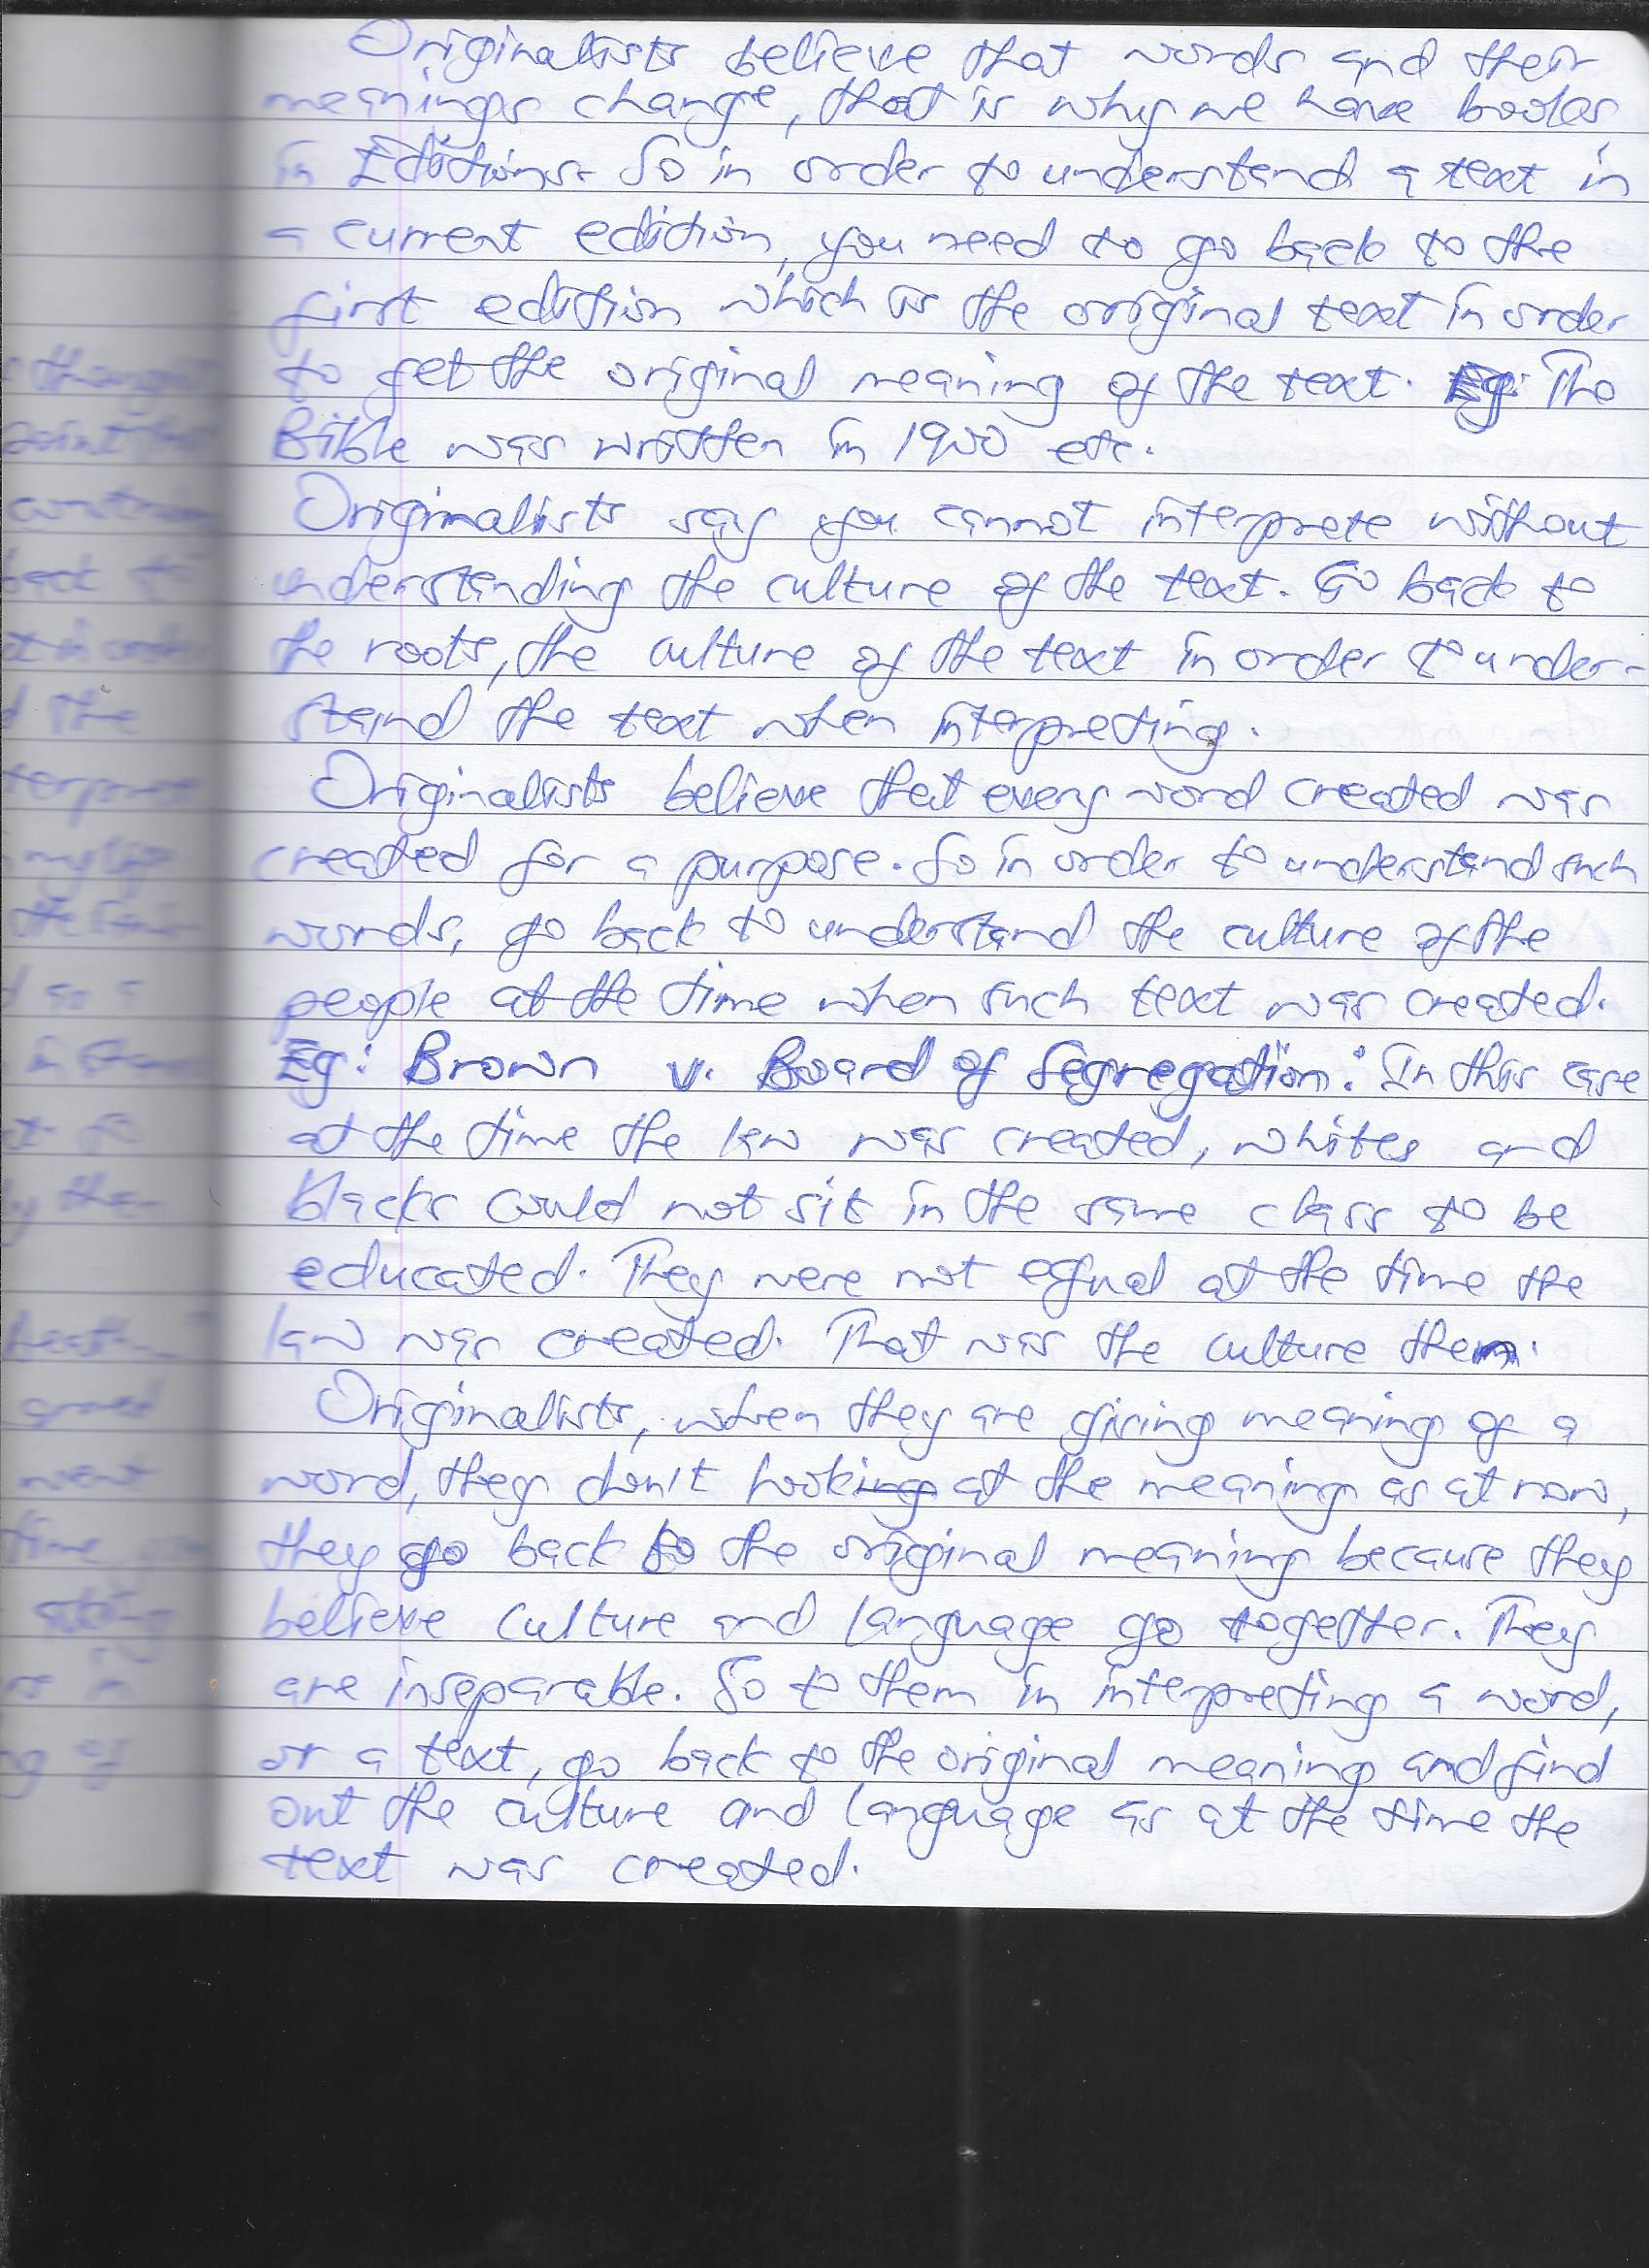 Originalists believe that words and their
meanings change, that is why we have books
in Editions. So in order to understand a text in
a current edition, you need to go back to the
first edition which is the original text in order
to get the original meaning of the text. Eg: The
Bible was written in 1900 etc.
Originalists say you cannot interprete without
understanding the culture of the text. Go back to
the roots, the culture of the text in order to under-
stand the text when interpreting.
Originalists believe that every word created was
created for a purpose. So in order to understand such
words, go back to understand the culture of the
people at the time when such text was created.
Eg: Brown v. Board of Segregation: In this case
at the time the law was created, whites and
blacks could not sit in the same class to be
educated. They were not equal at the time the
law was created. That was the culture then.
Originalists, when they are giving meaning of a
word, they don't looking at the meaning as at now,
they go back to the original meaning because they
believe culture and language go together. They
are inseparable. So to them in interpreting a word,
or a text, go back to the original meaning and find
out the culture and language as at the time the
text was created.